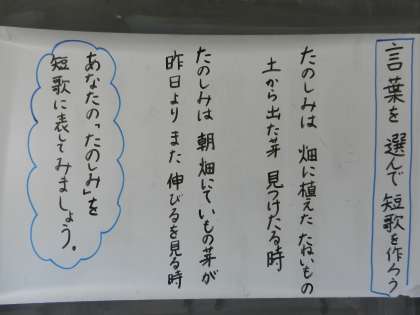 言葉を選んで短歌を作ろう
たのしみは 畑に植えた たねいもの
土から出た芽 見つけたる時
たのしみは 朝畑にていもの芽が
昨日より また 伸びるを見る時
あなたの「たのしみ」を
短歌に表してみましょう。